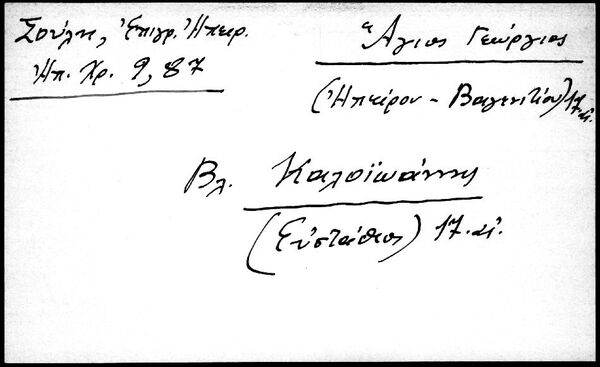 Σούλη, Ἐπιγρ. Ἠπειρ.
Ἠπ. Χρ. 9, 87
Ἅγιος Γεώργιος
(Ἠπείρου - Βαγενιτίου) 17. αἰ.
Βλ. Καλοϊωάννης
(Εὐστάθιος) 17. αἰ.